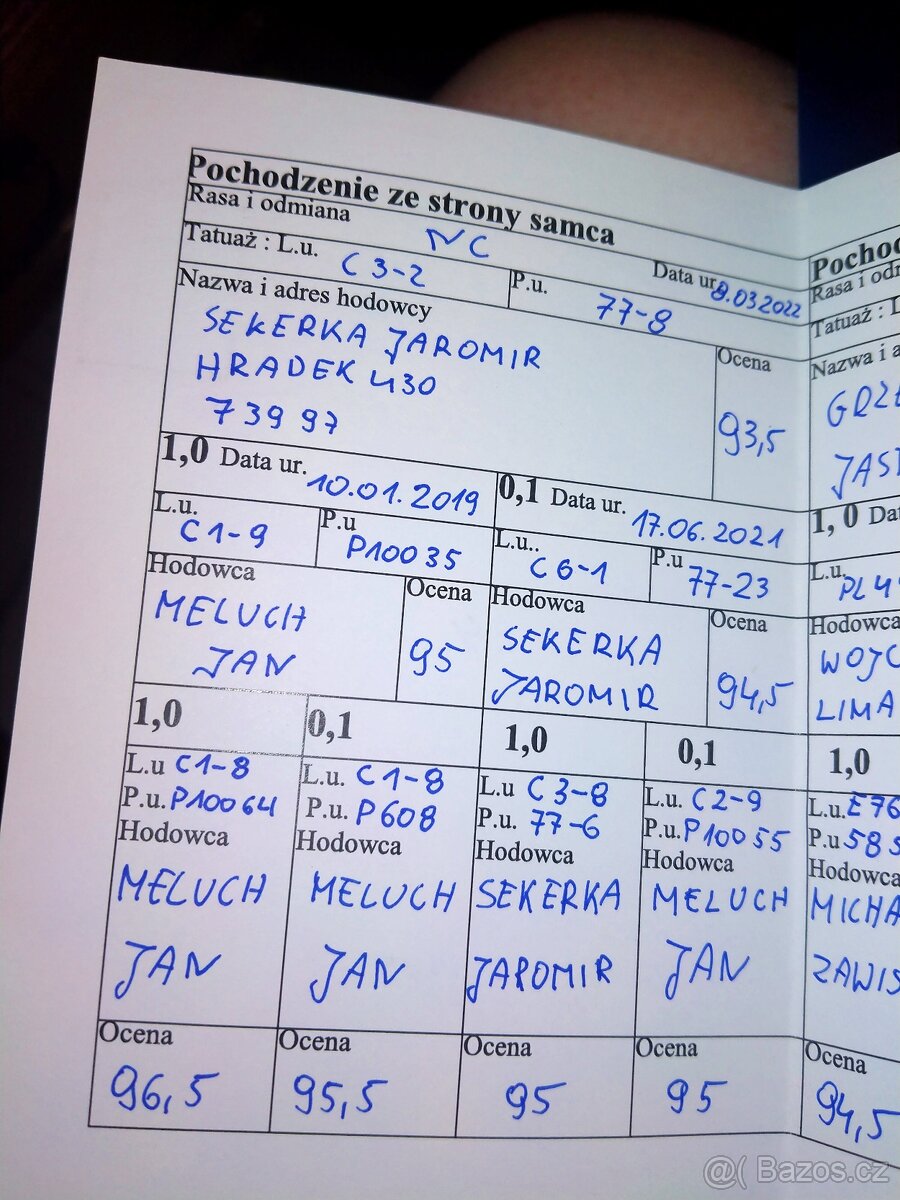 Pochodzenie ze strony samca
Rasa i odmiana NC
Tatuaż : L.u. C 3-2 P.u. 77-8 Data ur. 8.03 2022
Nazwa i adres hodowcy
SEKERKA JAROMIR
HRADEK 430
739 97
Ocena
93,5
1,0 Data ur. 10.01.2019
0,1 Data ur. 17.06.2021
L.u. C1-9 P.u P10035
L.u.. C 6-1 P.u 77-23
Hodowca
MELUCH
JAN
Ocena
95
Hodowca
SEKERKA
JAROMIR
Ocena
94,5
1,0
L.u C1-8
P.u. P10064
Hodowca
MELUCH
JAN
Ocena
96,5
0,1
L.u. C1-8
P.u. P608
Hodowca
MELUCH
JAN
Ocena
95,5
1,0
L.u C3-8
P.u. 77-6
Hodowca
SEKERKA
JAROMIR
Ocena
95
0,1
L.u. C2-9
P.u. P10055
Hodowca
MELUCH
JAN
Ocena
95
Rasa i
Tatuaż :
Nazwa i
1,0
L.u.
Hodowca
LIMA
1,0
L.u. E76
P.u 58
Hodowca
MICHA
ZAWIS
Ocena
94,5
@( Bazos.cz